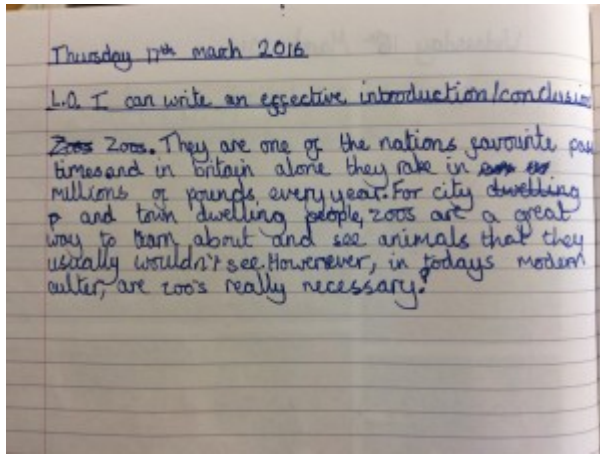 Thursday 17th march 2016
L.O. I can write an effective introduction/conclusion
Zoos Zoos. They are one of the nations favourite pas
times and in britain alone they rake in
millions of pounds every year. For city dwelling
p and town dwelling people, zoos are a great
way to learn about and see animals that they
usually wouldn't see. Howerever, in todays modern
culter, are zoo's really necessary?